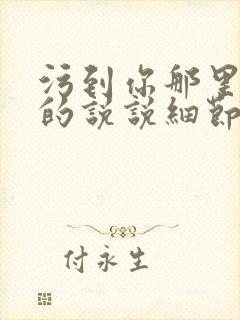 污到你那里
的説説細節
付永生